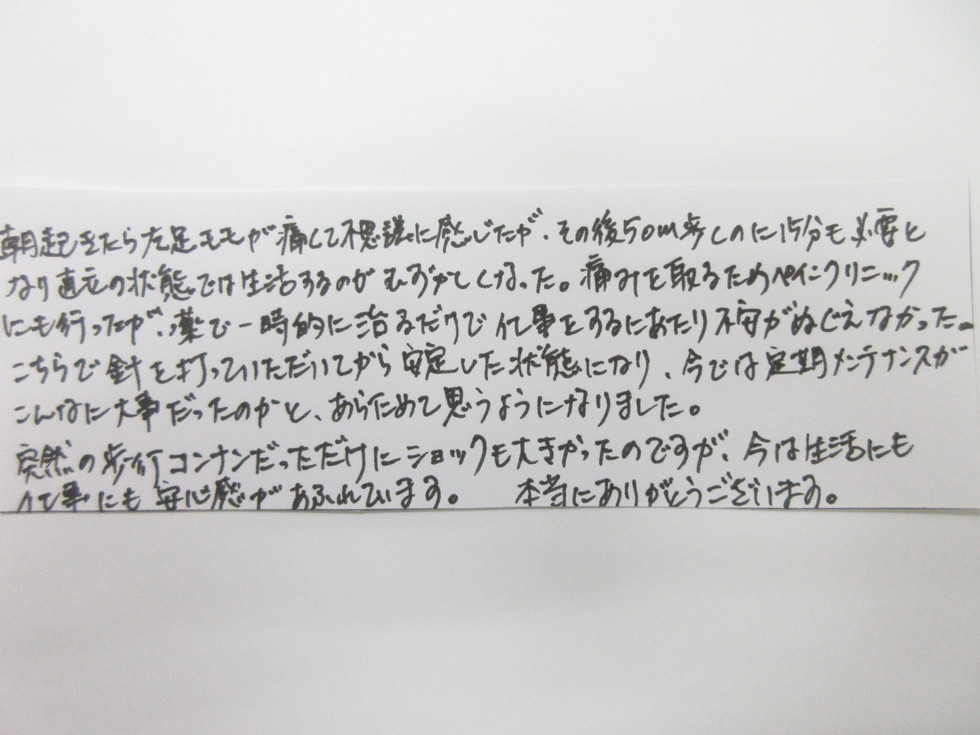 朝起きたら左足ももが痛くて不思議に感じたが、その後50m歩くのに15分も必要と
なり足元の状態では生活するのがむずかしくなった。痛みを取るためペインクリニック
にも行ったが、薬で一時的に治るだけで仕事をするにあたり不安がぬぐえなかった。
こちらで針を打っていただいてから安定した状態になり、今では定期メンテナンスが
こんなに大事だったのかと、あらためて思うようになりました。
突然の歩行コンナンだっただけにショックも大きかったのですが、今は生活にも
仕事にも安心感があふれています。 本当にありがとうございます。